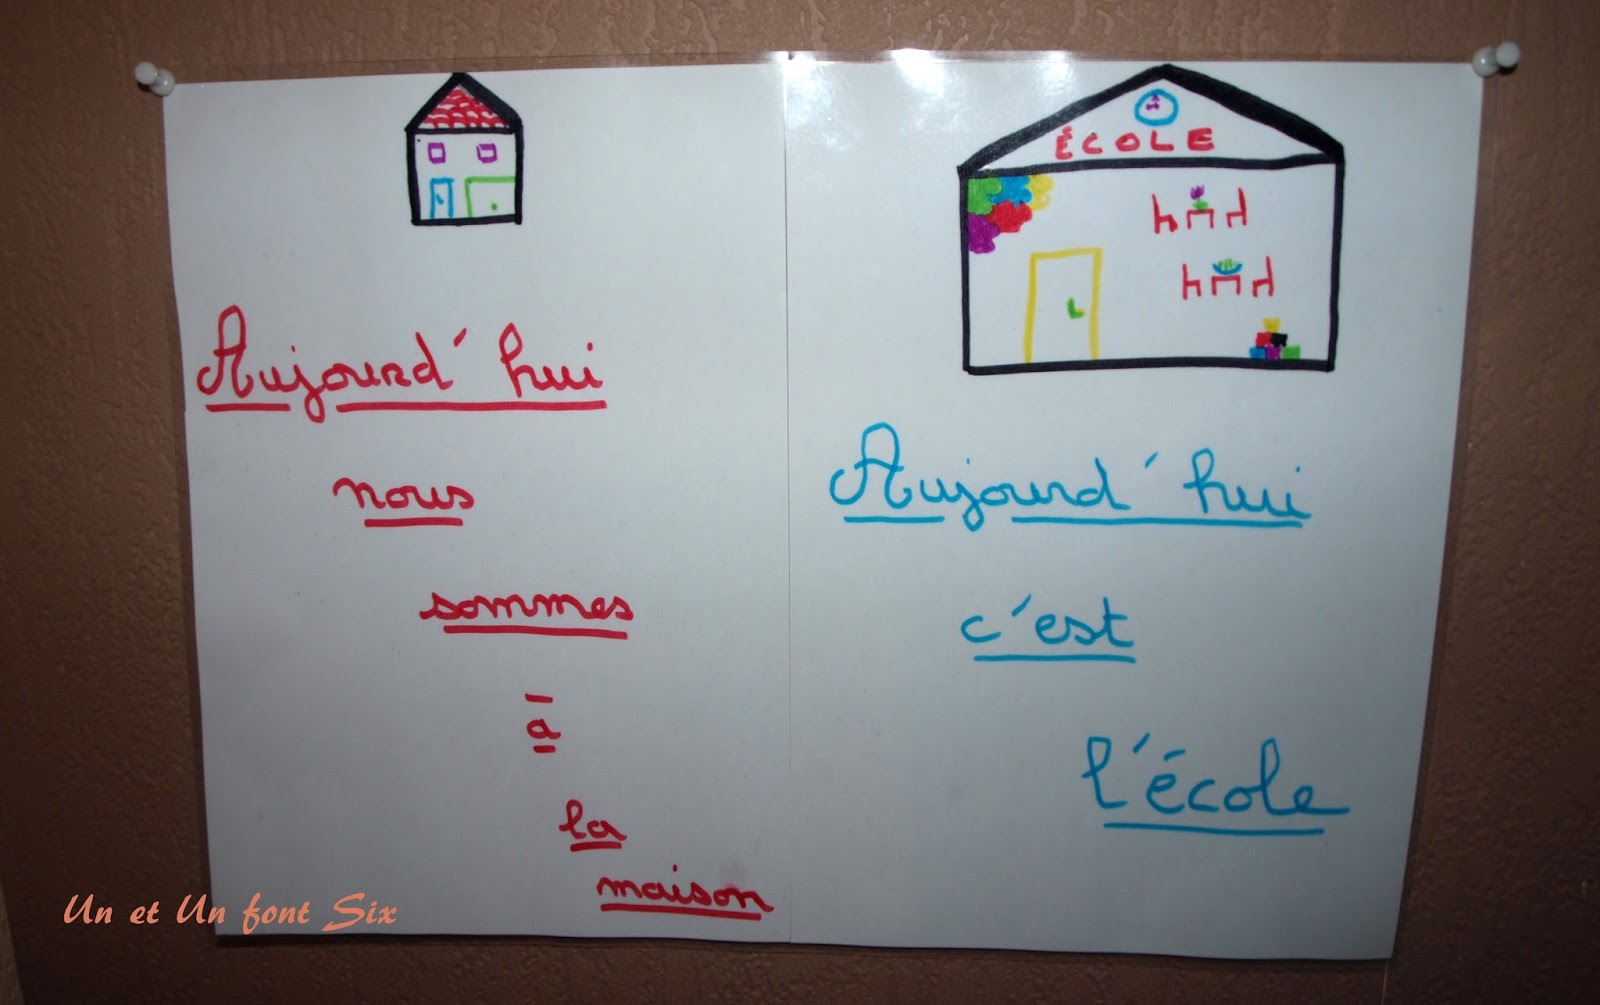 Aujourd'hui
nous
sommes
à
la
maison
ÉCOLE
Aujourd'hui
c'est
l'école
Un et Un font Six